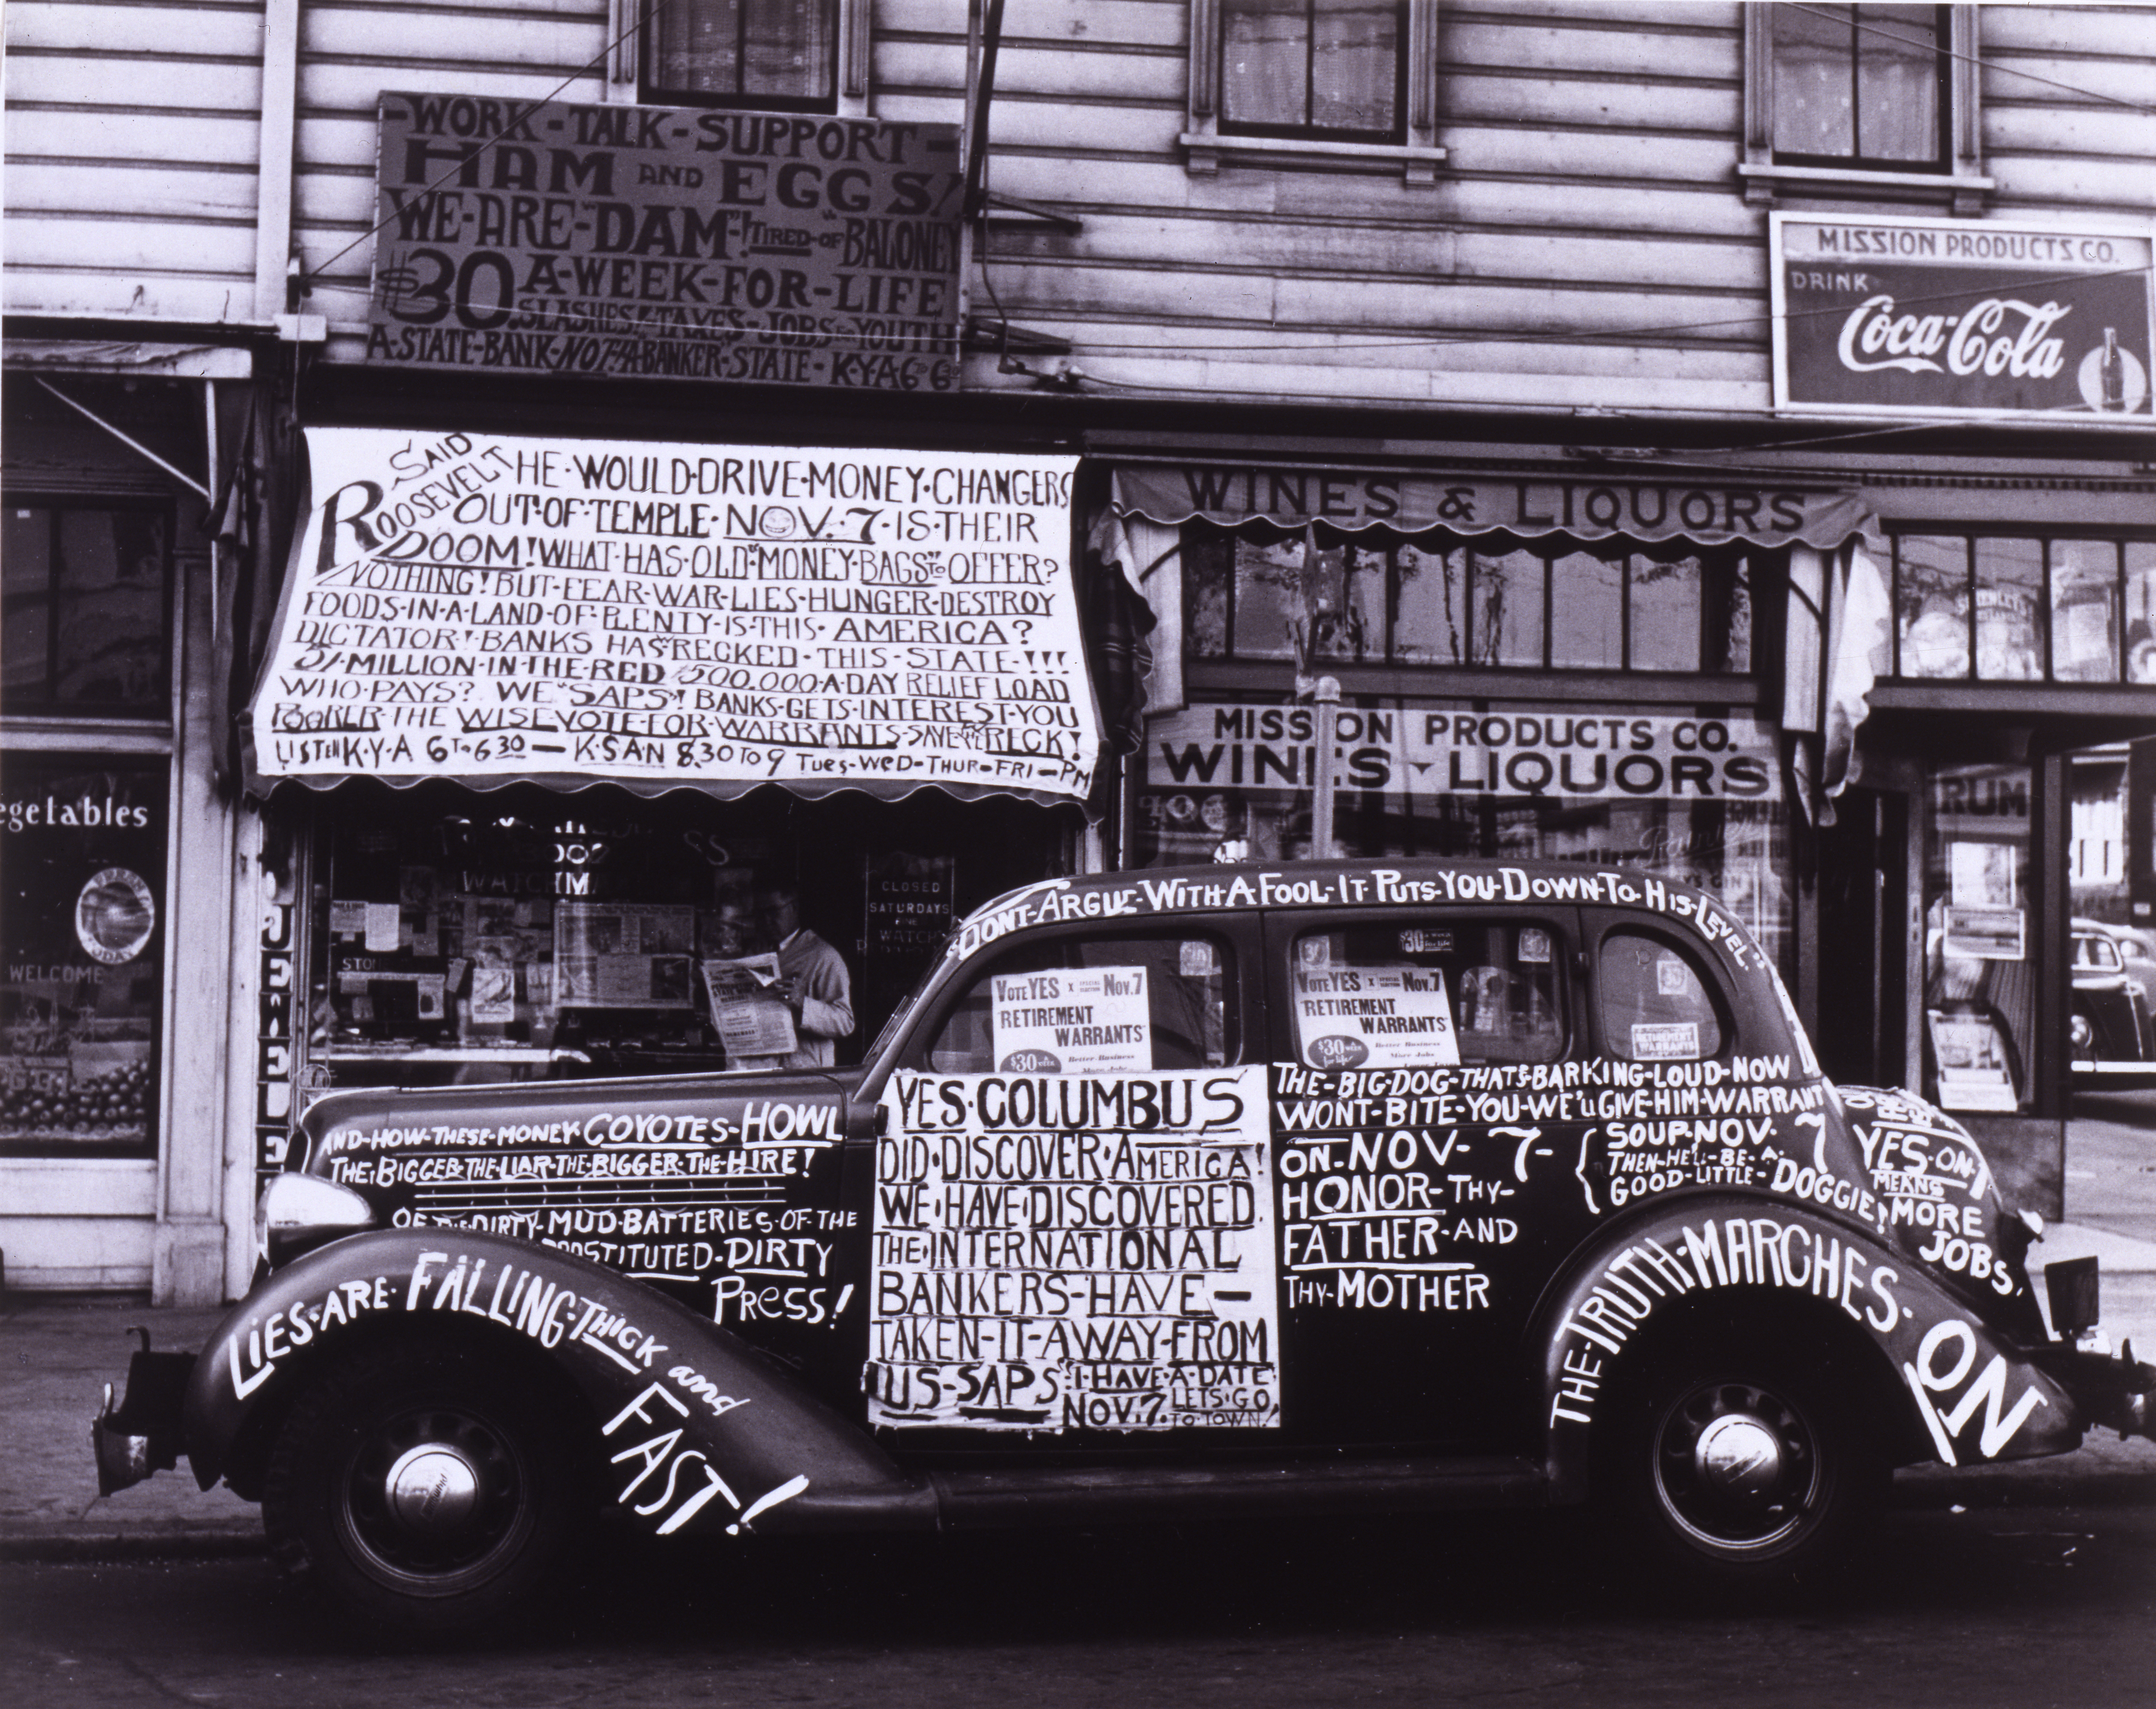 -WORK-TALK-SUPPORT-
HAM AND EGGS!
WE-ARE-"DAM"-!TIRED-OF"BALONEY
$30 A-WEEK-FOR-LIFE
SLASHES!-TAXES-JOBS-YOUTH
A-STATE-BANK-NOT-A-BANKER-STATE-K-Y-A 6 TO 6 30
MISSION PRODUCTS CO.
DRINK
Coca-Cola
SAID
ROOSEVELT HE·WOULD·DRIVE·MONEY·CHANGERS
OUT·OF·TEMPLE·NOV.7·IS·THEIR
DOOM!WHAT·HAS·OLD"MONEY·BAGS"TO OFFER?
NOTHING!BUT·FEAR·WAR·LIES·HUNGER·DESTROY
FOODS·IN·A·LAND·OF·PLENTY·IS·THIS·AMERICA?
DICTATOR!·BANKS HAS RECKED·THIS·STATE·!!!
MILLION·IN·THE·RED $500.000·A·DAY RELIEF LOAD
WHO·PAYS? WE"SAPS"! BANKS·GETS·INTEREST·YOU
POORER·THE WISE·VOTE·FOR·WARRANTS·SAVE RECK!
LISTEN K·Y·A 6 TO 6 30 — K·SAN 8.30 TO 9 TUES-WED-THUR-FRI-PM
WINES & LIQUORS
MISSION PRODUCTS CO.
WINES - LIQUORS
egetables
WELCOME
JE
WATCHMA
CLOSED
SATURDAYS
WATCH
RUM
"DONT-ARGUE-WITH-A FOOL-IT PUTS-YOU-DOWN-TO-HIS-LEVEL."
VOTE YES X SPECIAL ELECTION NOV.7
"RETIREMENT
WARRANTS"
$30 A WEEK
Better Business
More Jobs
VOTE YES X SPECIAL ELECTION NOV.7
"RETIREMENT
WARRANTS"
$30 A WEEK for life
Better Business
More Jobs
$30
RETIREMENT
WARRANTS
AND-HOW-THESE-MONEY COYOTES-HOWL
THE-BIGGER-THE-LIAR-THE-BIGGER-THE-HIRE!
OF THE DIRTY-MUD-BATTERIES-OF-THE
PROSTITUTED-DIRTY
PRESS!
LIES-ARE-FALLING-THICK and FAST!
YES·COLUMBUS
DID·DISCOVER·AMERICA!
WE·HAVE·DISCOVERED
THE·INTERNATIONAL
BANKERS-HAVE—
TAKEN-IT-AWAY-FROM
US-SAPS "I-HAVE-A-DATE
NOV.7. LETS·GO
TO·TOWN!
THE-BIG-DOG-THATS-BARKING-LOUD-NOW
WONT-BITE-YOU-WE'LL GIVE-HIM-WARRANT
ON-NOV-7-
SOUP-NOV. 7
THEN-HE'LL-BE-A-
GOOD-LITTLE-DOGGIE!
HONOR-THY-
FATHER-AND
THY-MOTHER
YES-ON-1
MEANS
MORE
JOBS.
THE-TRUTH-MARCHES-ON